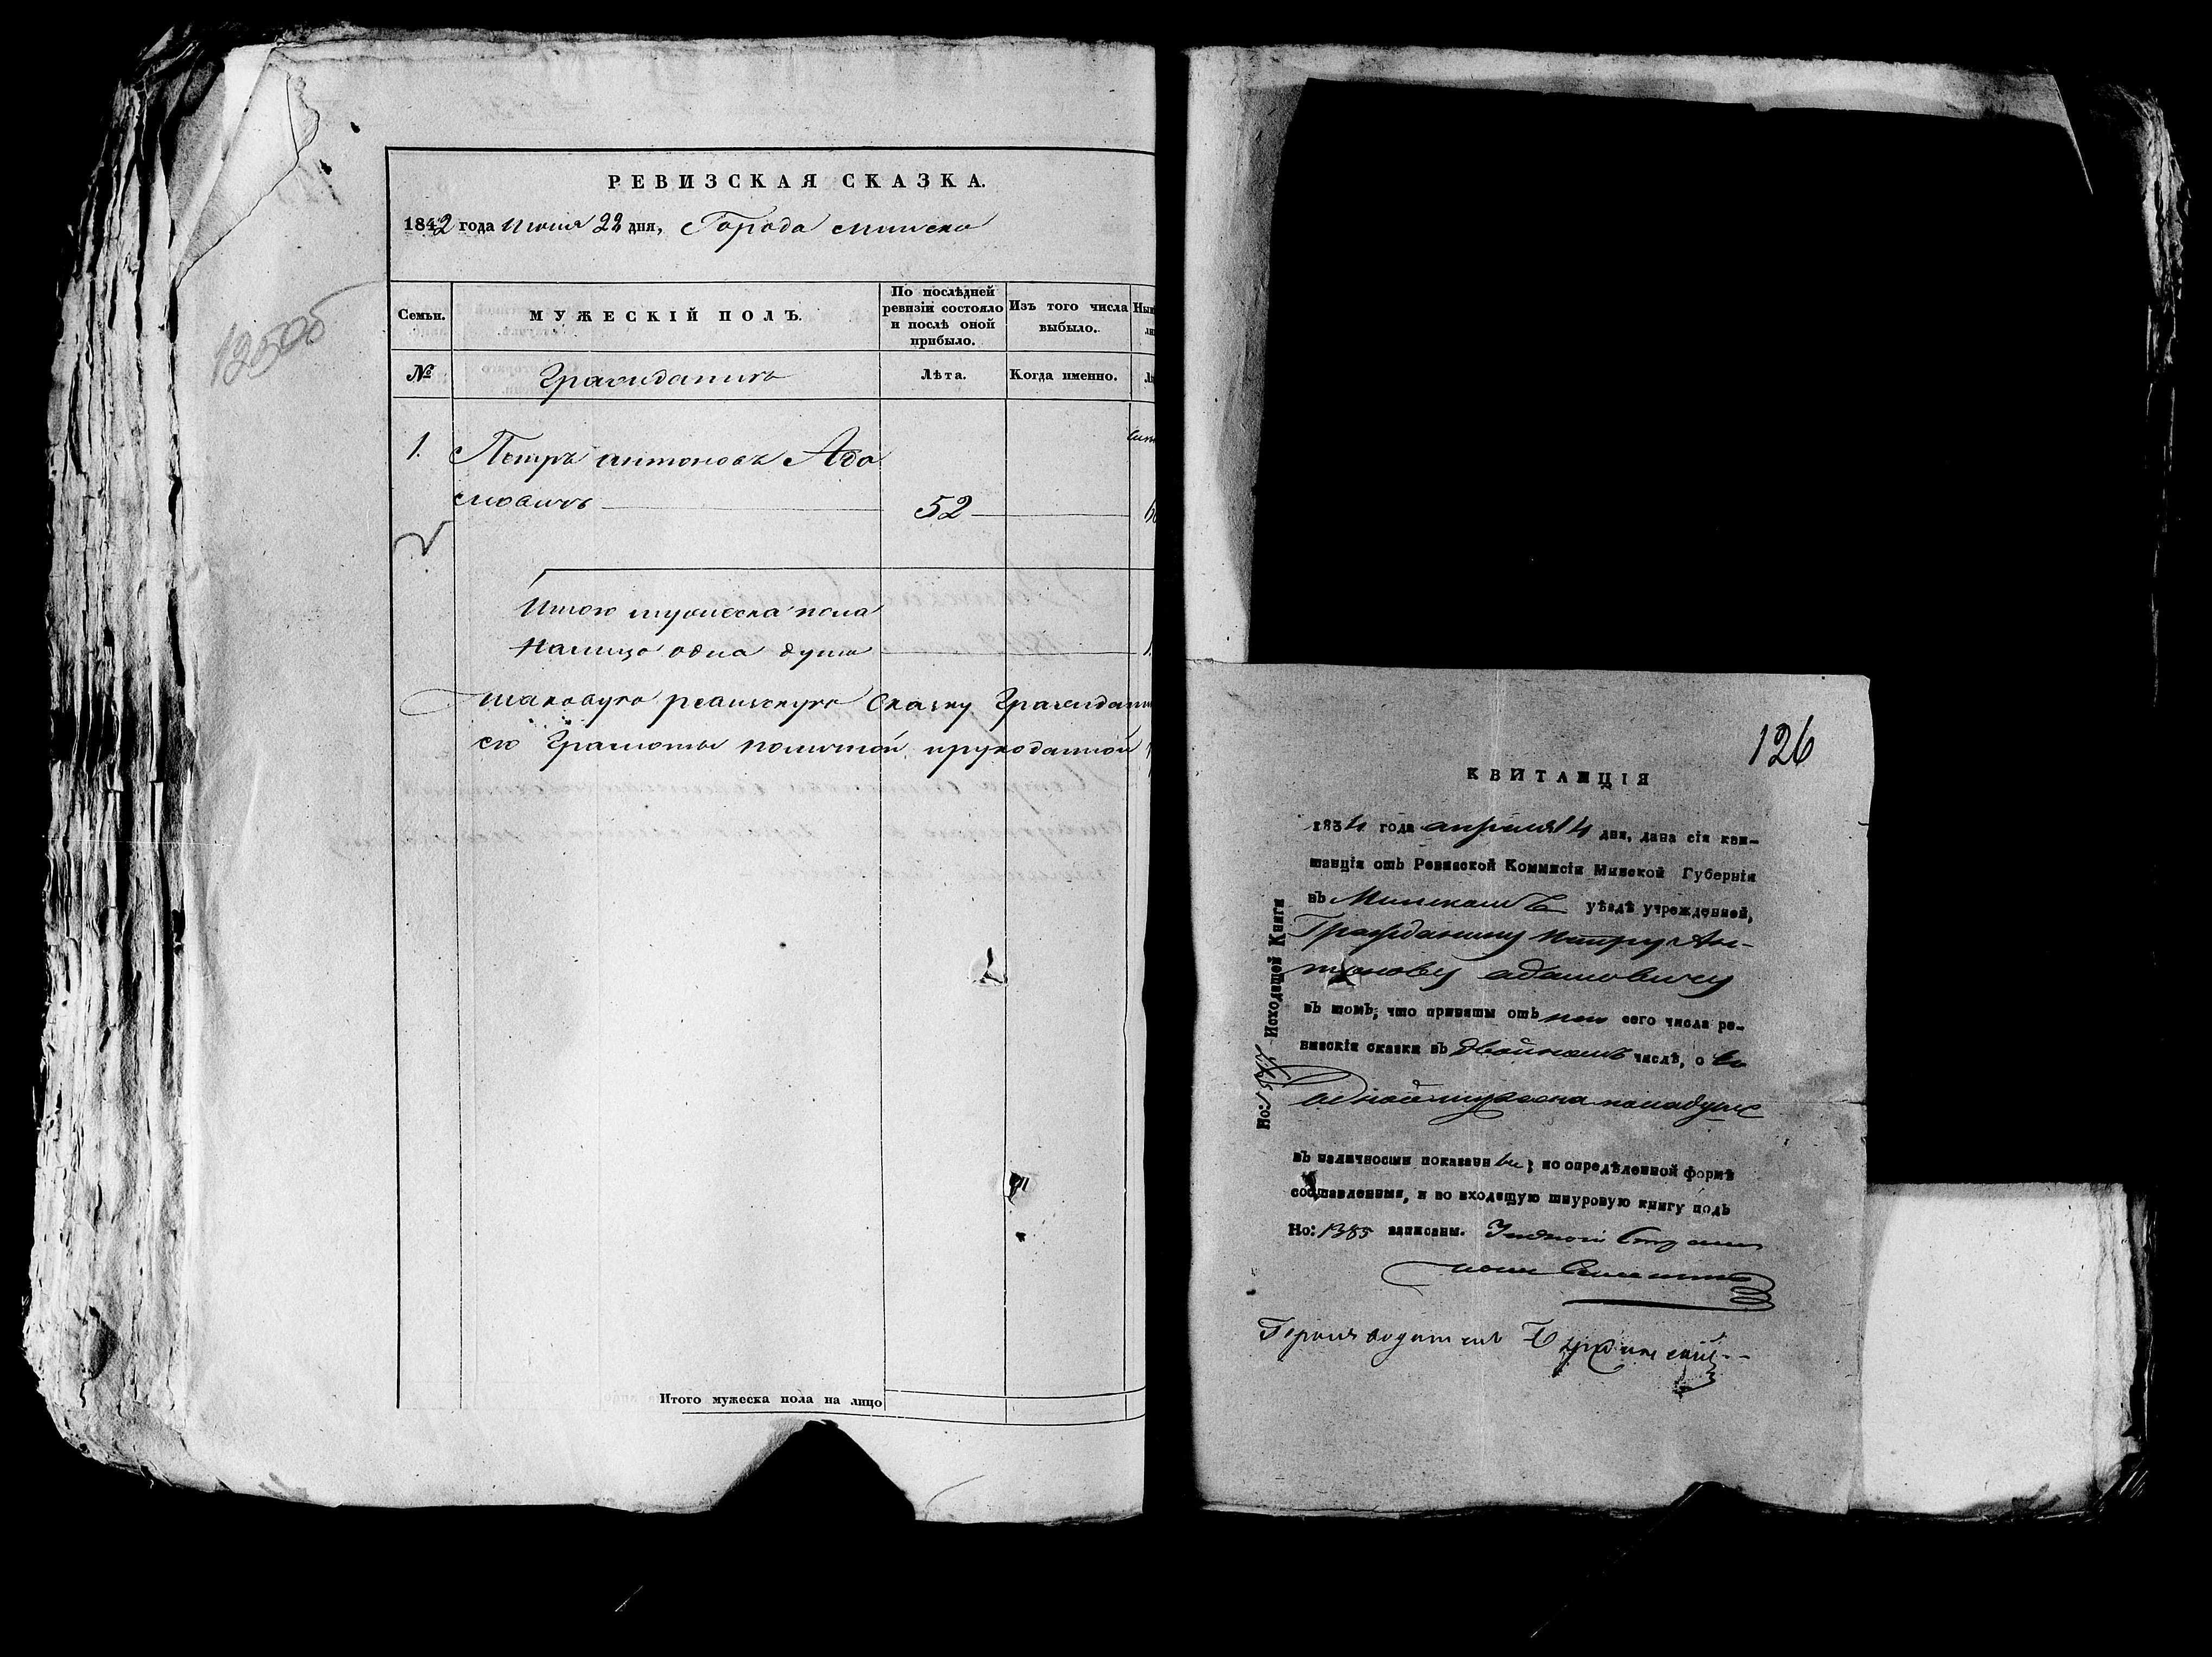 125об
РЕВИЗСКАЯ СКАЗКА.
1842 года Июня 22 дня, Города минска
Семьи.
МУЖЕСКІЙ ПОЛЪ.
По послѣдней ревизіи состояло и послѣ оной прибыло.
Изъ того числа выбыло.
№
Гражданинъ
Лѣта.
Когда именно.
1.
Петръ антоновъ Ада
мовичъ
52
Итого мужеска пола
Налицо одна душа
таковую ревизскую Сказку
Грамоты
Итого мужеска пола на лицо
126
КВИТАНЦІЯ
1834 года апреля 14 дня, дана сія кви-
танція отъ Ревизской Коммисіи Минской Губерніи
въ Минскомъ уѣздѣ учрежденной,
Гражданину Петру Ан-
тонову адамовичу
въ томъ, что приняты отъ него сего числа ре-
визскія сказки въ двойномъ числѣ, о
одной мужеска пола душе
въ наличности показан; по опредѣленной формѣ
составленныя, и во входящую шнуровую книгу подъ
Но: 1385 записаны.
Но: Исходящей Книги
Производитель